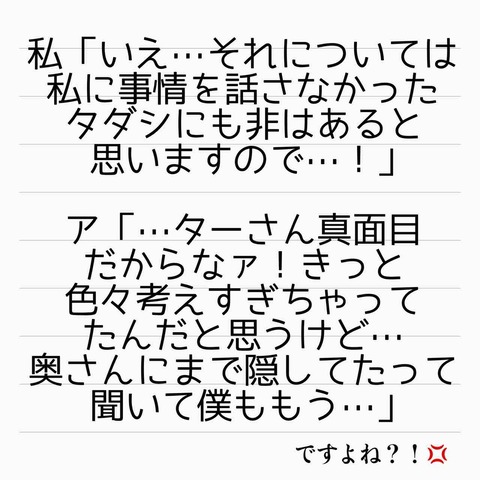 私「いえ…それについては
私に事情を話さなかった
タダシにも非はあると
思いますので…！」
ア「…ターさん真面目
だからなァ！きっと
色々考えすぎちゃって
たんだと思うけど…
奥さんにまで隠してたって
聞いて僕ももう…」
ですよね？！💢